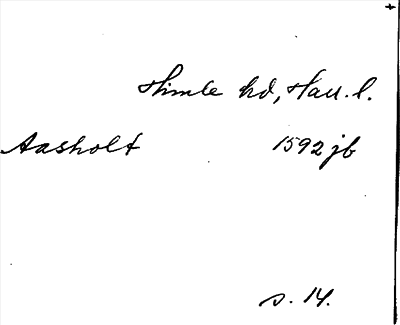 Himle hd, Hall. l.
Aasholt 1592 jb
s. 14.